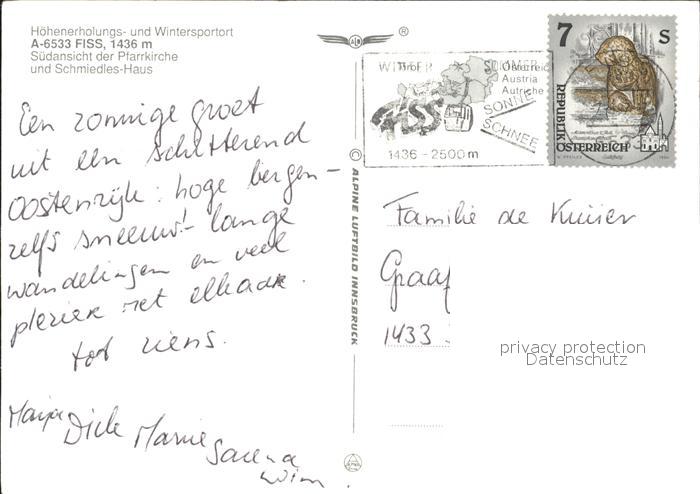 Höhenerholungs- und Wintersportort
A-6533 FISS, 1436 m
Südansicht der Pfarrkirche
und Schmiedles-Haus
®
WINTER SOMMER
Tirol Österreich
Austria
Autriche
FISS
SONNE
SCHNEE
1436 - 2500 m
7 S
REPUBLIK
ÖSTERREICH
Een zonnige groet
uit een schitterend
Oostenrijk: hoge bergen -
zelfs sneeuw! - lange
wandelingen en veel
plezier met elkaar.
tot ziens.
Dick Marrie
Wim
© ALPINE LUFTBILD INNSBRUCK
Familie de
Graaf
1433
privacy protection
Datenschutz